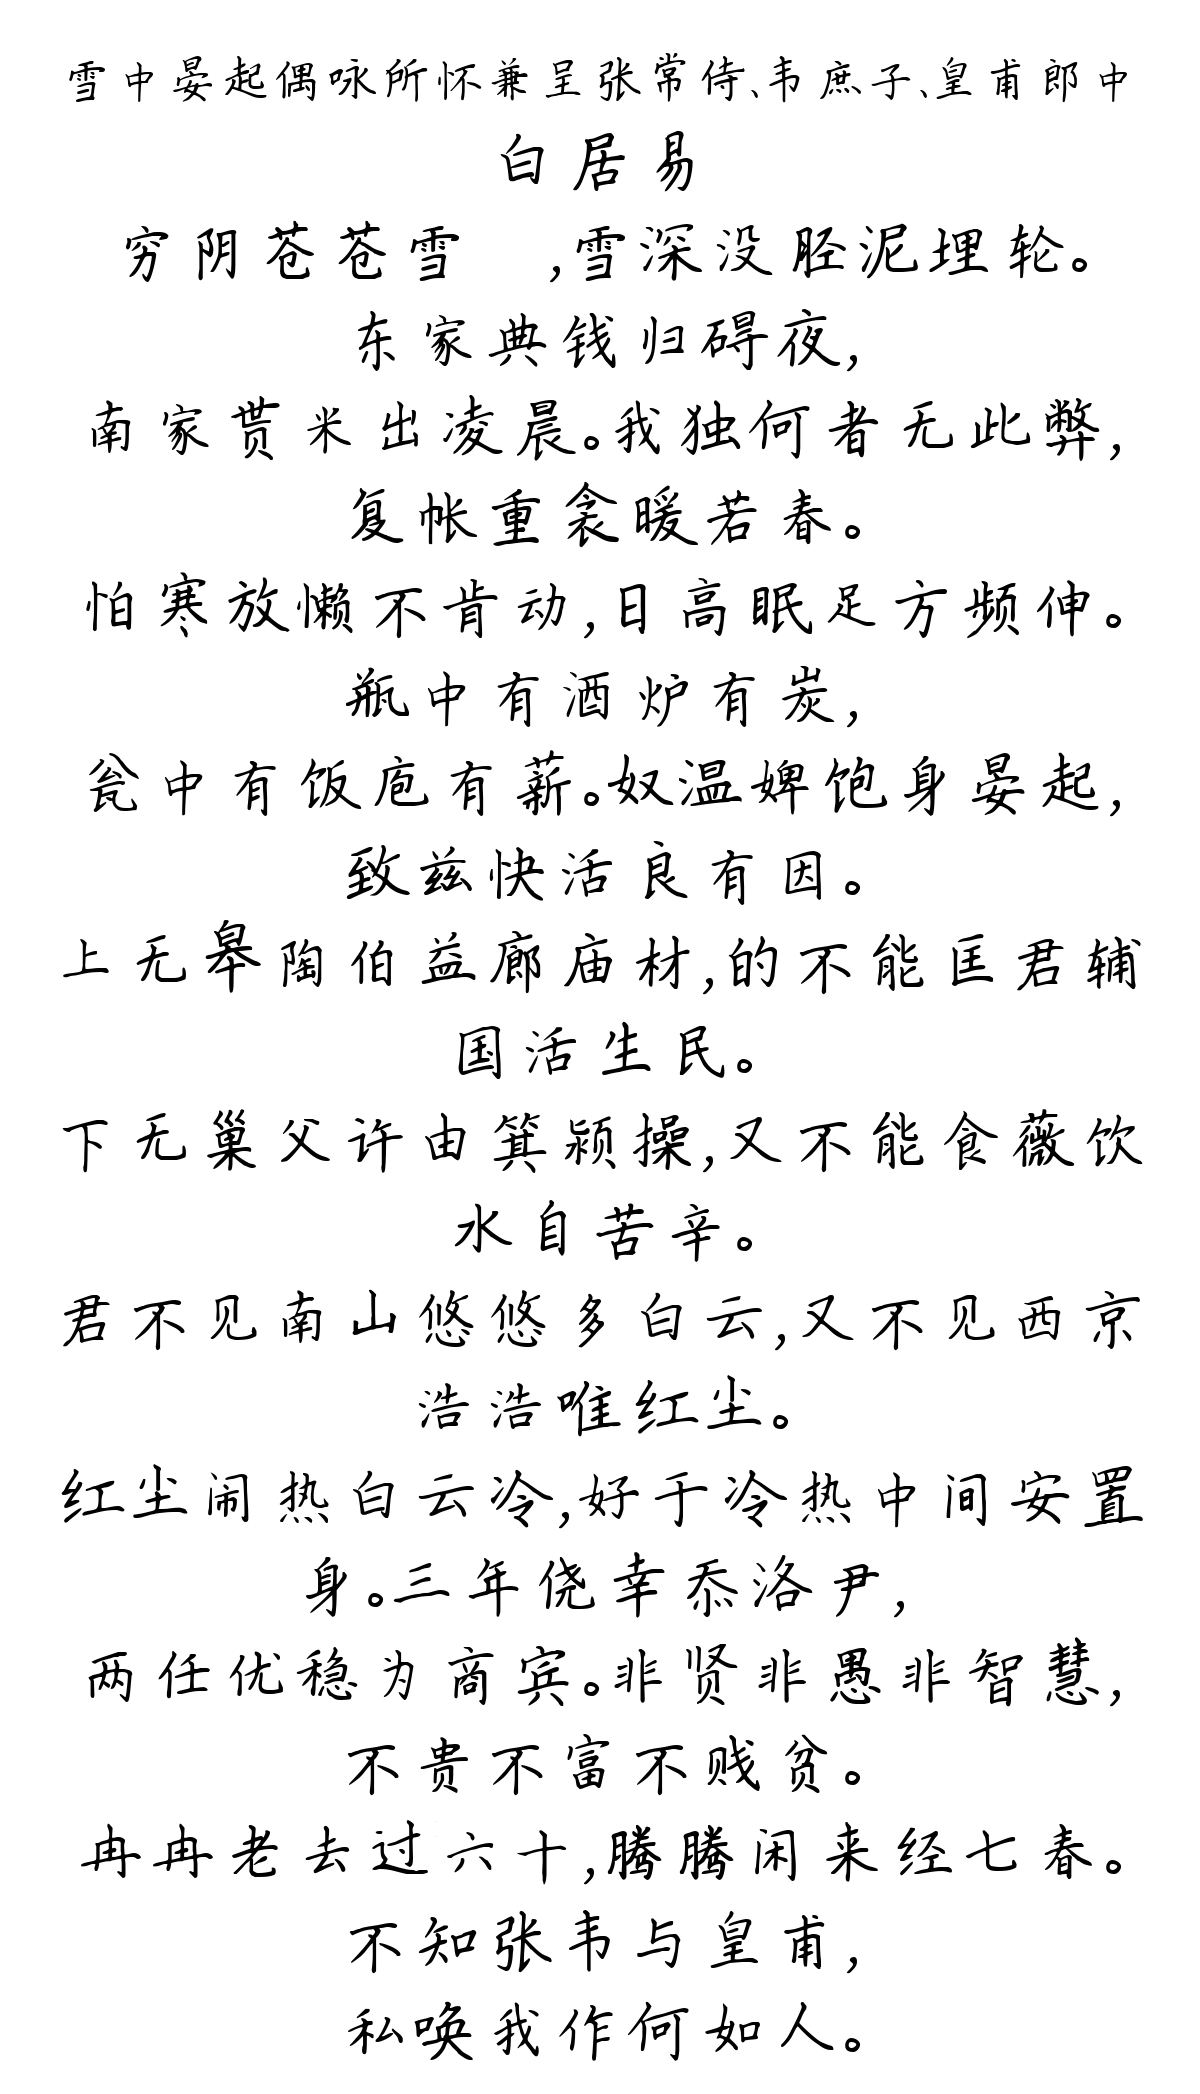 雪中晏起偶咏所怀兼呈张常侍、韦庶子、皇甫郎中
白居易
穷阴苍苍雪 ,雪深没胫泥埋轮。
东家典钱归碍夜,
南家贳米出凌晨。我独何者无此弊,
复帐重衾暖若春。
怕寒放懒不肯动,日高眠足方频伸。
瓶中有酒炉有炭,
瓮中有饭庖有薪。奴温婢饱身晏起,
致兹快活良有因。
上无皋陶伯益廊庙材,的不能匡君辅
国活生民。
下无巢父许由箕颍操,又不能食薇饮
水自苦辛。
君不见南山悠悠多白云,又不见西京
浩浩唯红尘。
红尘闹热白云冷,好于冷热中间安置
身。三年侥幸忝洛尹,
两任优稳为商宾。非贤非愚非智慧,
不贵不富不贱贫。
冉冉老去过六十,腾腾闲来经七春。
不知张韦与皇甫,
私唤我作何如人。